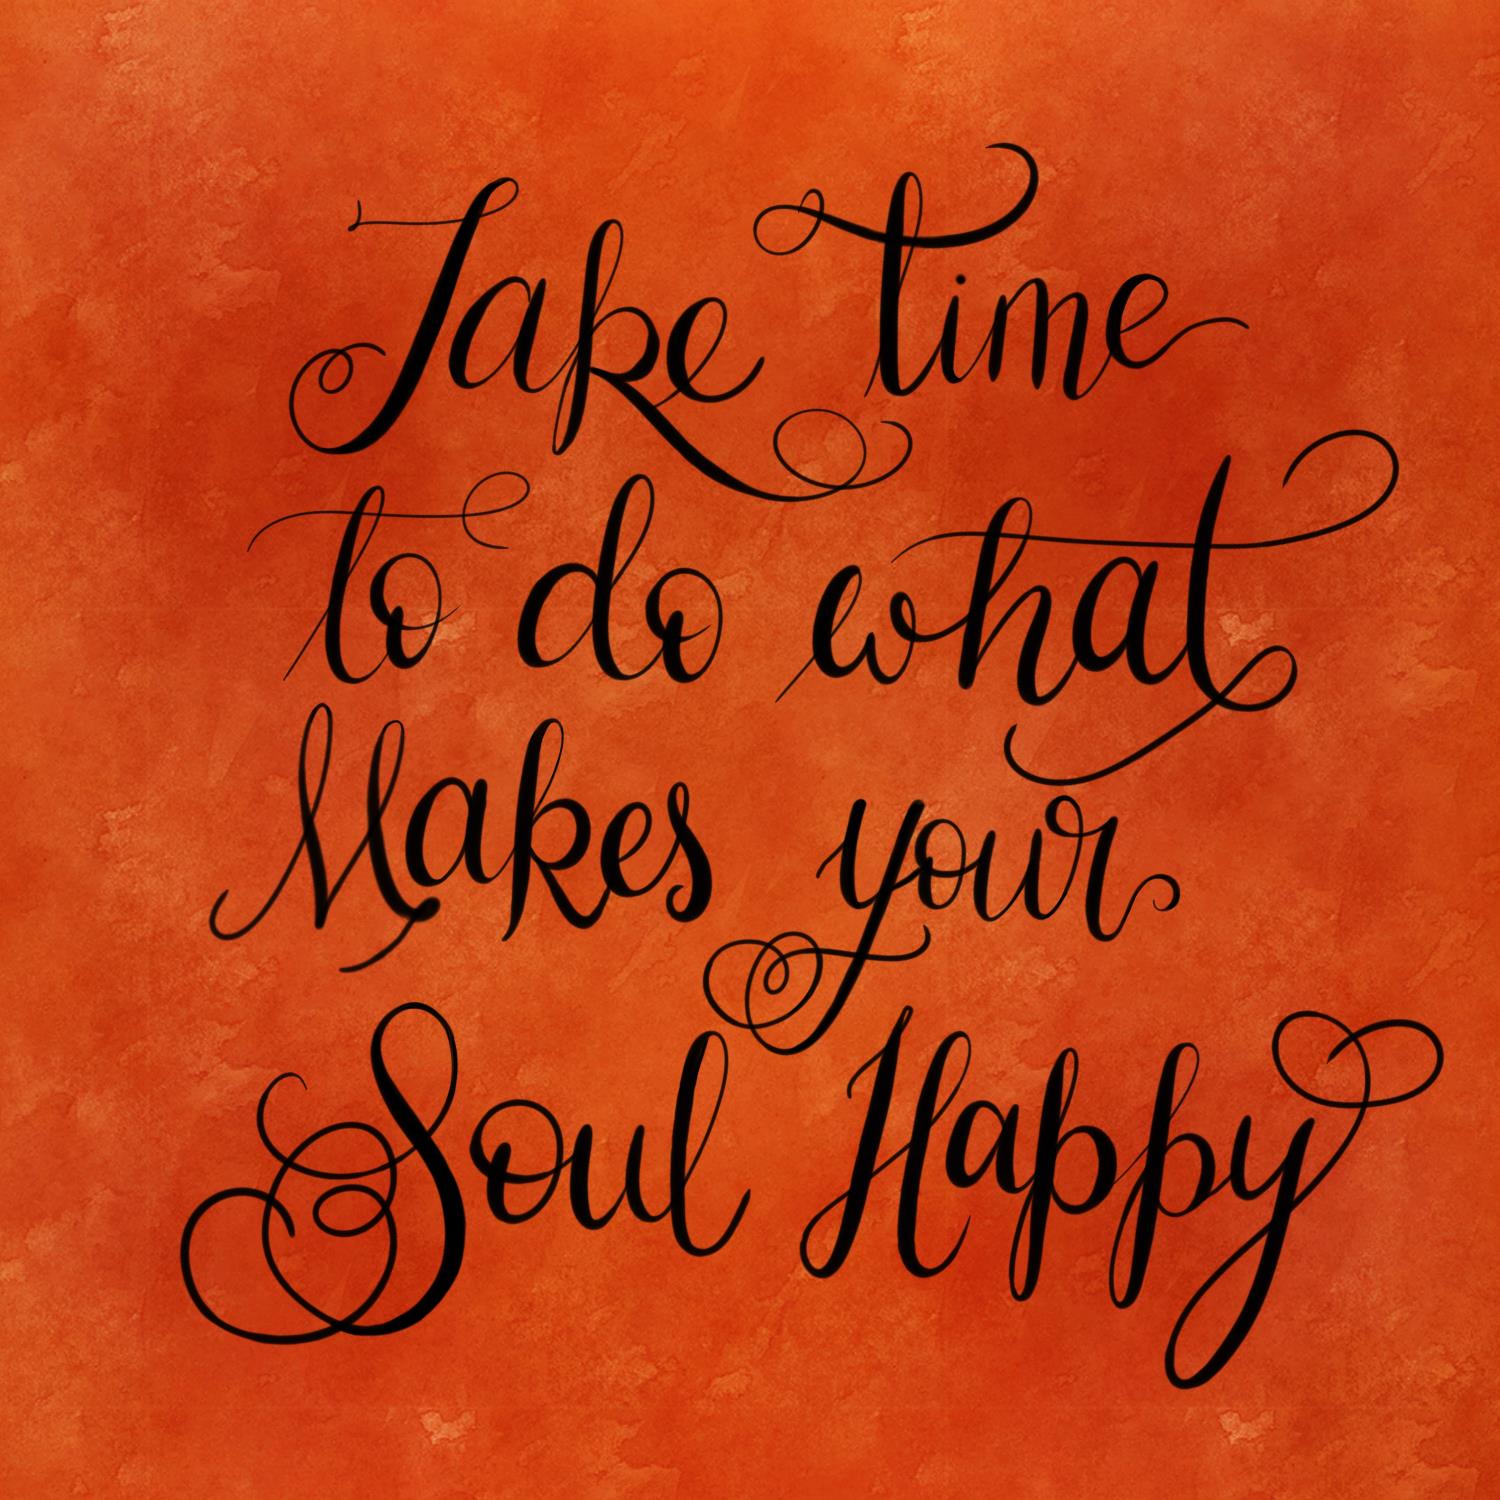 Take time
to do what
Makes your
Soul Happy